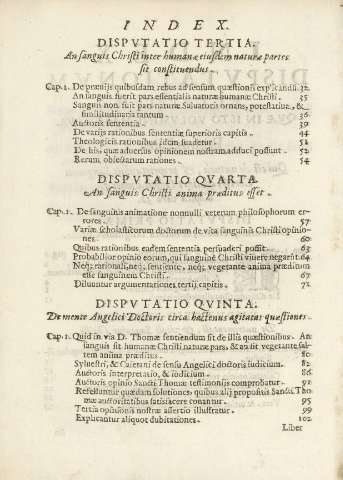 INDEX.
DISPVTATIO TERTIA.
An sanguis Christi inter humanæ eiusdem naturæ partes
sit constituendus.
Cap. 1. De præuijs quibusdam rebus ad sensum quæstionis explicandū. 32.
An sanguis fuerit pars essentialis naturæ humanæ Christi. 35
Sanguis non fuit pars naturæ Saluatoris ornans, potestatiua, &
similitudinaria tantum. 36
Auctoris sententia. 39
De varijs rationibus sententiæ superioris capitis. 44
Theologicis rationibus idem suadetur. 52
De his, quæ aduersus opinionem nostram adduci possunt. 52
Rerum obiectarum rationes. 54
DISPVTATIO QVARTA.
An sanguis Christi anima præditus esset.
Cap. 1. De sanguinis animatione nonnulli veterum philosophorum er-
rores. 57
Variæ scholasticorum doctorum de vita sanguinis Christi opinio-
nes. 60
Quibus rationibus eadem sententia persuaderi possit. 63
Probabilior opinio eorum, qui sanguinē Christi viuere negarūt. 64
Neq; rationali, neq; sentiente, neq; vegetante anima præditum
esse sanguinem Christi. 67
Diluuntur argumentationes tertij capitis. 72
DISPVTATIO QVINTA.
De mente Angelici Doctoris circa hactenus agitatas quæstiones.
Cap. 1. Quid in via D. Thomæ sentiendum sit de illis quæstionibus. An
sanguis sit humanæ Christi naturæ pars, & an sit vegetante sal-
tem anima præditus. 80
Syluestri, & Caietani de sensu Angelici doctoris iudicium. 82
Auctoris interpretatio, & iudicium. 86
Auctoris opinio Sancti Thomæ testimonijs comprobatur. 92
Refelluntur quædam solutiones, quibus alij propositis Sancti Tho
mæ auctoritatibus satisfacere conantur. 95
Tertia opinionis nostræ assertio illustratur. 99
Explicantur aliquot dubitationes. 102
Liber